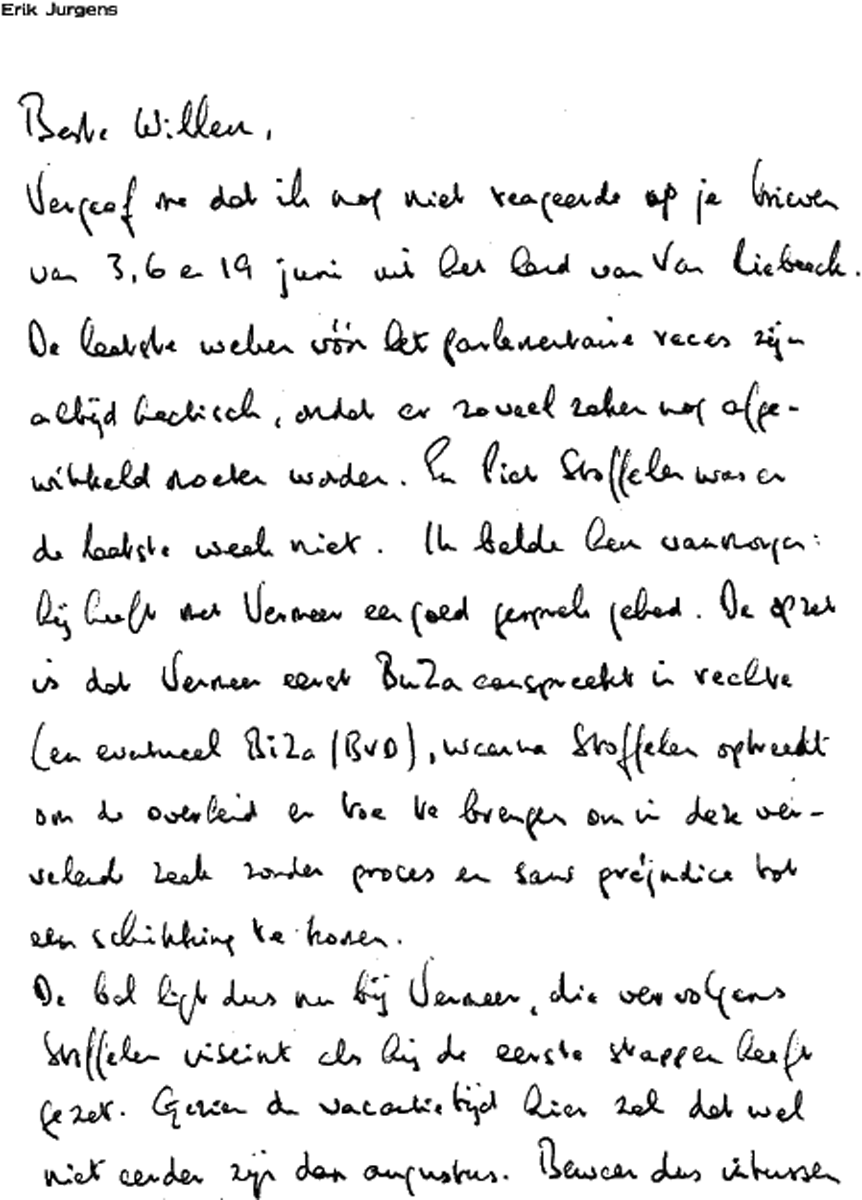 Erik Jurgens
Beste Willem,
Vergeef me dat ik nog niet reageerde op je brieven
van 3, 6 en 19 juni uit het land van Van Riebeeck.
De laatste weken vóór het parlementaire reces zijn
altijd hectisch, omdat er zoveel zaken nog afge-
wikkeld moeten worden. En Piet Stoffelen was er
de laatste week niet. Ik belde hem vanmorgen:
hij heeft met Vermeer een goed gesprek gehad. De opzet
is dat Vermeer eerst BuZa aanspreekt in rechte
(en eventueel BiZa (BVD), waarna Stoffelen optreedt
om de overheid er toe te brengen om in deze ver-
velende zaak zonder proces en sans préjudice tot
een schikking te komen.
De bal ligt dus nu bij Vermeer, die vervolgens
Stoffelen inseint als hij de eerste stappen heeft
gezet. Gezien de vacantietijd hier zal dat wel
niet eerder zijn dan augustus. Bewaar dus intussen